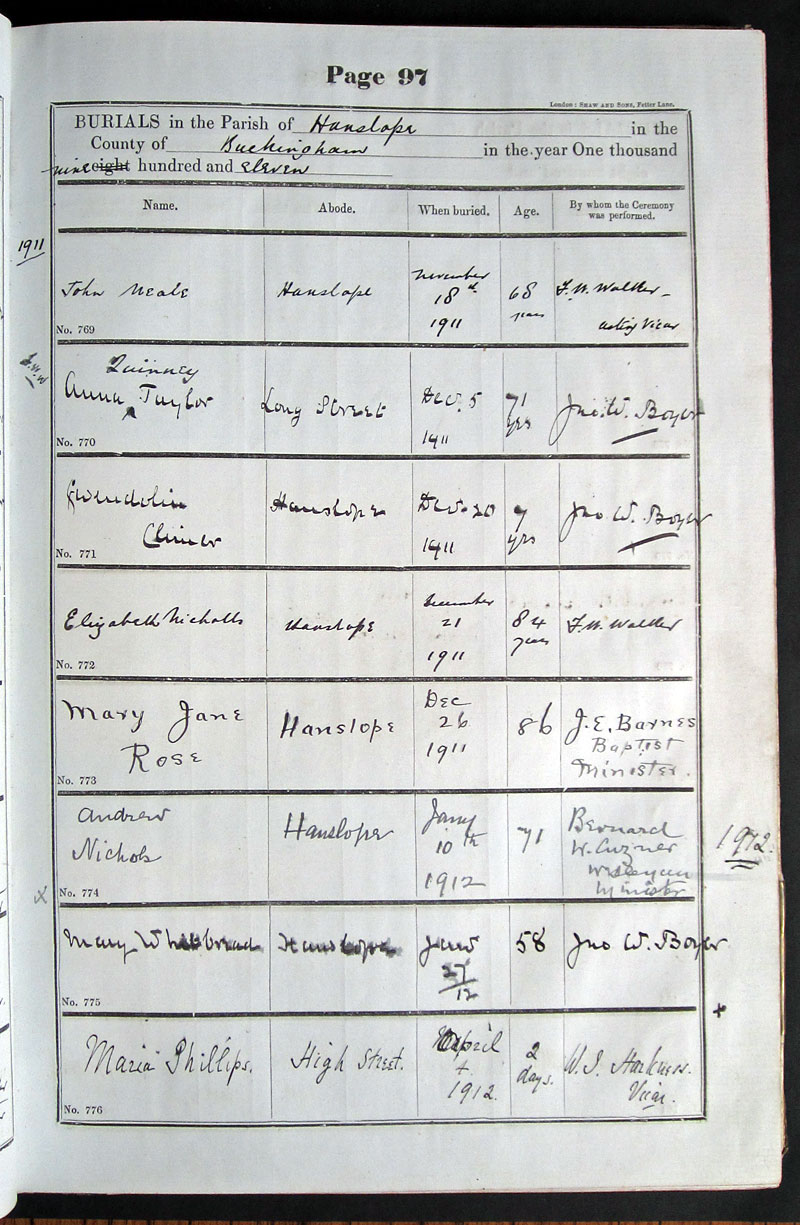 Page 97
London: SHAW AND SONS, Fetter Lane.
BURIALS in the Parish of Hanslope in the
County of Buckingham in the year One thousand
nine eight hundred and eleven
Name. Abode. When buried. Age. By whom the Ceremony was performed.
1911
John Neale Hanslope November 18th 1911 68 years F. W. Walker - acting Vicar
No. 769
Quinney
Anna Taylor Long Street Dec. 5 1911 71 yrs Jno. W. Boyer
No. 770
Gwendolin Hanslope Dec. 20 1911 7 yrs Jno W. Boyer
No. 771
Elizabeth Nicholls Hanslope December 21 1911 84 years F. W. Walker
No. 772
Mary Jane Rose Hanslope Dec 26 1911 86 J. E. Barnes Baptist Minister.
No. 773
Andrew Nichols Hanslope Jany 10th 1912 71 Bernard W. Cuzner Wesleyan Minister
1912.
No. 774
x
Mary Whitbread Hanslope Jany 27/12 58 Jno W. Boyer
No. 775
+
Maria Phillips. High Street. April 1912. 2 days. W. J. Harkness. Vicar.
No. 776